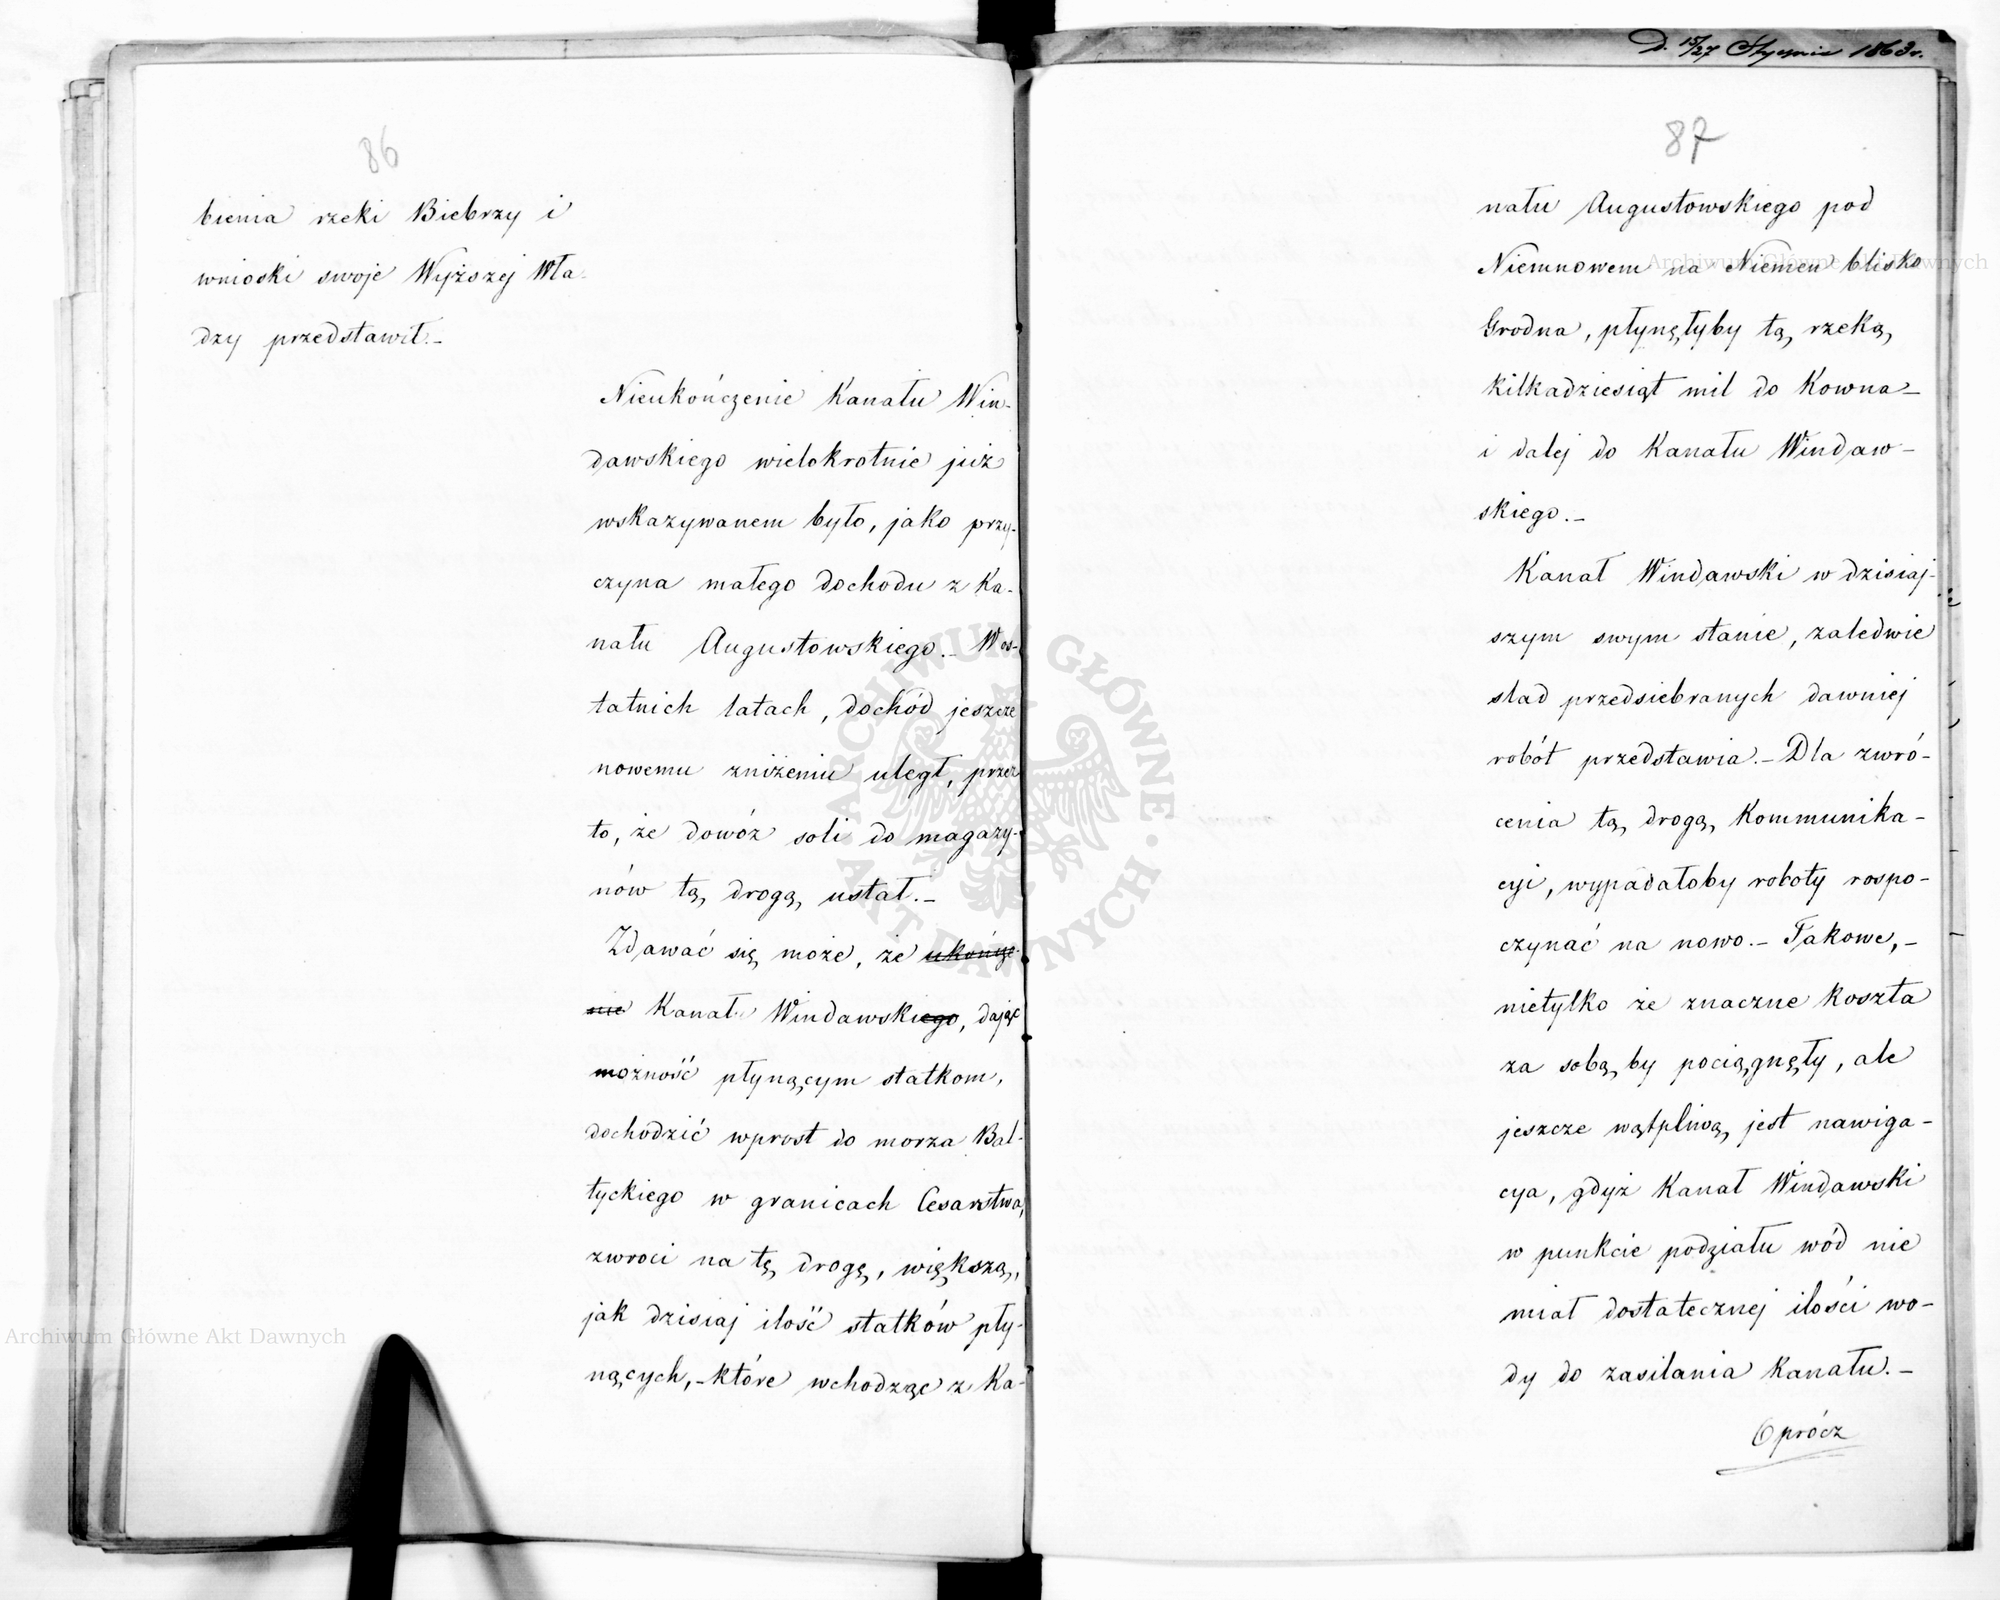 86
bienia rzeki Biebrzy i
wnioski swoje Wyższej Wła-
dzy przedstawił.-
Nieukończenie Kanału Win-
dawskiego wielokrotnie już
wskazywanem było, jako przy-
czyna małego dochodu z Ka-
nału Augustowskiego.- W os-
tatnich latach, dochód jeszcze
nowemu zniżeniu uległ, przez
to, że dowóz soli do magazy-
nów tą drogą ustał.-
Zdawać się może, że ukończe-
nie Kanał Windawskiego, dając
możność płynącym statkom,
dochodzić wprost do morza Bal-
tyckiego w granicach Cesarstwa,
zwroci na tę drogę, większą,
jak dzisiaj ilość statków pły-
nących,- które wchodząc z Ka-
D. 15/27 Stycznia 1863 r.
87
nału Augustowskiego pod
Niemnowem na Niemen blisko
Grodna, płynęłyby tą rzeką
kilkadziesiąt mil do Kowna-
i dalej do Kanału Windaw-
skiego.-
Kanał Windawski w dzisiaj-
szym swym stanie, zaledwie
slad przedsiebranych dawniej
robót przedstawia.- Dla zwró-
cenia tą drogą Kommunika-
cyi, wypadałoby roboty rospo-
czynać na nowo.- Takowe,-
nietylko że znaczne koszta
za sobą by pociągnęły, ale
jeszcze wątpliwą jest nawiga-
cya, gdyż Kanał Windawski
w punkcie podziału wód nie
miał dostatecznej ilości wo-
dy do zasilania kanału.-
Oprócz
Archiwum Główne Akt Dawnych
Archiwum Główne Akt Dawnych
ARCHIWUM GŁÓWNE AKT DAWNYCH